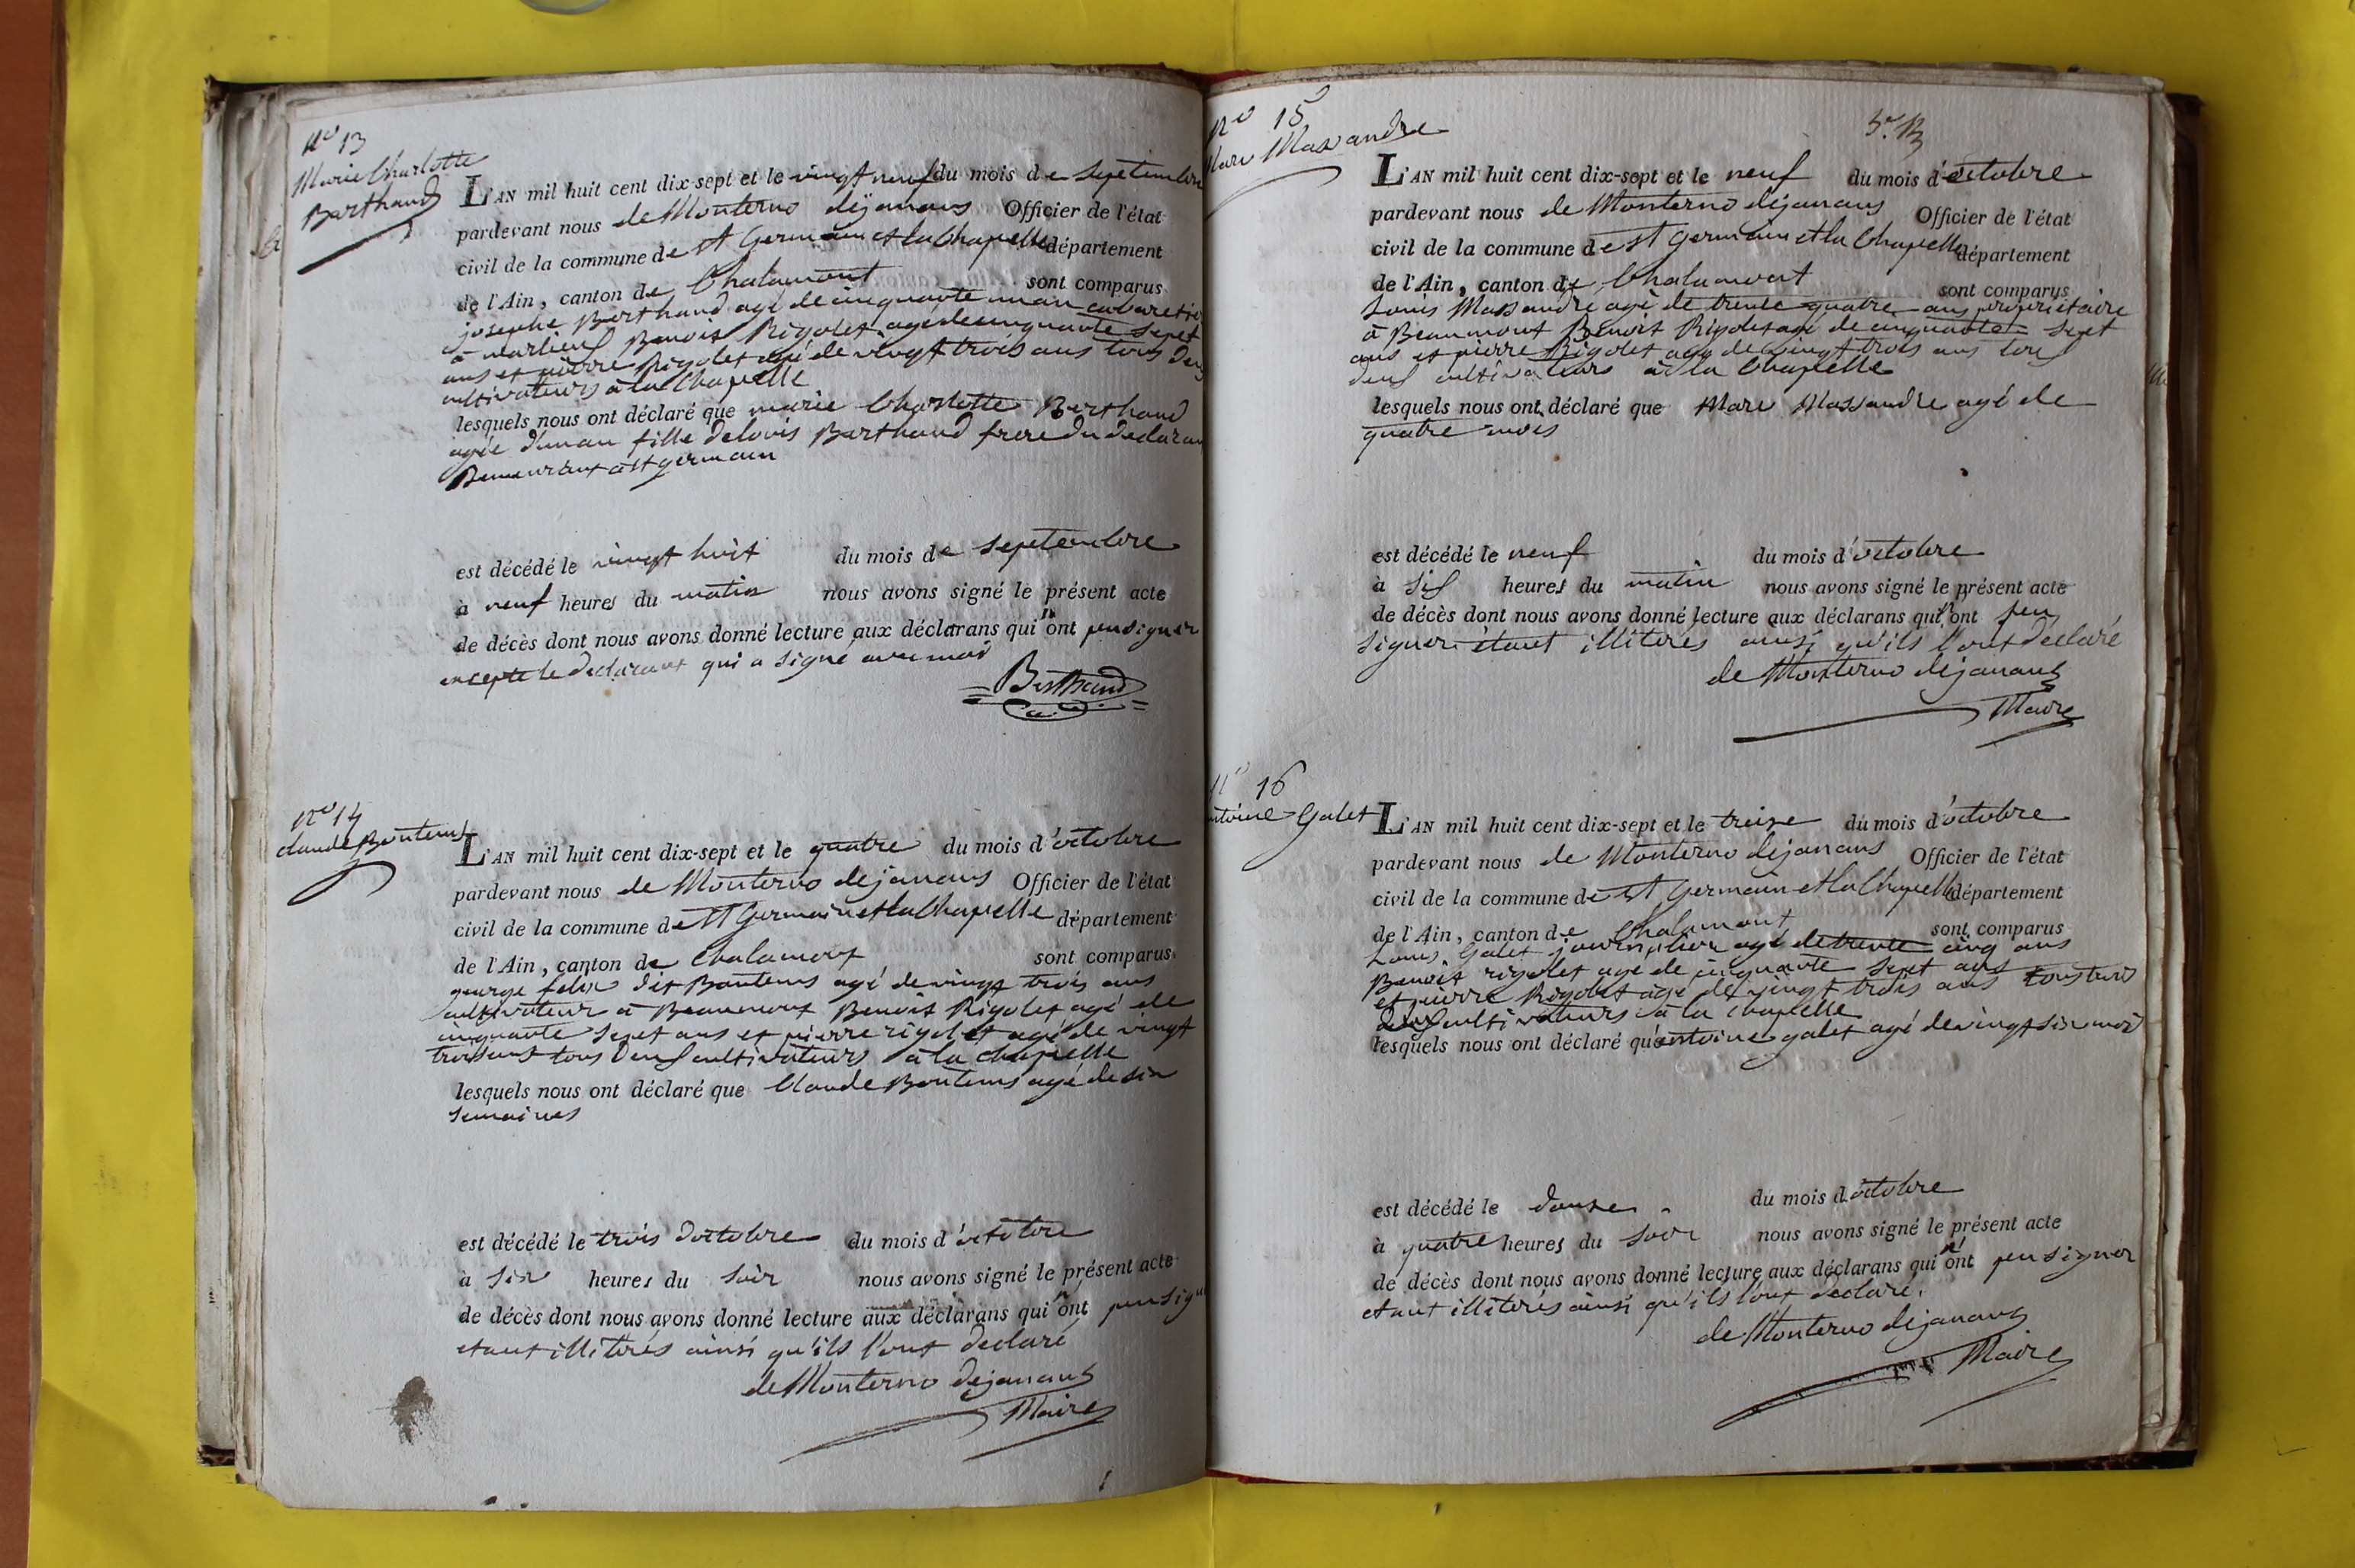 nº 13
Marie Charlotte
Barthaud
L'AN mil huit cent dix-sept et le vingt neuf du mois de septembre
pardevant nous de Monterno dejanans Officier de l'état
civil de la commune de st Germain et la Chapelle département
de l'Ain, canton de Chalamont sont comparus
josephe Berthaud agé de cinquante un an cabaretie
à marlieux Benoit Rigolet agé de cinquante sept
ans et pierre Rigolet agé de vingt trois ans tous deux
cultivateurs à la Chapelle
lesquels nous ont déclaré que marie Charlotte Berthaud
agée d'un an fille de louis Barthaud frere du declarant
Demeurant à st germain
est décédé le vingt huit du mois de septembre
à neuf heures du matin nous avons signé le présent acte
de décès dont nous avons donné lecture aux déclarans qui n'ont peu signer
excepte le declarant qui a signé avec moi
Berthaud
nº 14
claude Boutems
L'AN mil huit cent dix-sept et le quatre du mois d'octobre
pardevant nous de Monterno dejanans Officier de l'état
civil de la commune de st Germain et la Chapelle département
de l'Ain, canton de Chalamont sont comparus
george felix dit Boutems agé de vingt trois ans
cultivateur à Beaumont Benoit Rigolet agé de
cinquante sept ans et pierre rigolet agé de vingt
trois ans tous deux cultivateurs à la chapelle
lesquels nous ont déclaré que Claude Boutems agé de six
semaines
est décédé le trois d'octobre du mois d'octobre
à six heures du soir nous avons signé le présent acte
de décès dont nous avons donné lecture aux déclarans qui n'ont peu sign
etant illitérés ainsi qu'ils l'ont declaré
de Monterno dejanans
Maire
nº 15
Marc Massandre
L'AN mil huit cent dix-sept et le neuf du mois d'octobre
pardevant nous de Monterno dejanans Officier de l'état
civil de la commune de st Germain et la Chapelle département
de l'Ain, canton de Chalamont sont comparus
Louis Massandre agé de trente quatre ans propriétaire
à Beaumont Benoit Rigolet agé de cinquante sept
ans et pierre Rigolet agé de vingt trois ans tous
deux cultivateurs à la Chapelle
lesquels nous ont déclaré que Marc Massandre agé de
quatre mois
est décédé le neuf du mois d'octobre
à six heures du matin nous avons signé le présent acte
de décès dont nous avons donné lecture aux déclarans qui n'ont peu
signer étant illitérés ainsi qu'ils l'ont declaré
de Monterno dejanans
Maire
nº 16
ntoine Galet
L'AN mil huit cent dix-sept et le treize du mois d'octobre
pardevant nous de Monterno dejanans Officier de l'état
civil de la commune de st Germain et la Chapelle département
de l'Ain, canton de Chalamont sont comparus
Louis Galet journalier agé de trente cinq ans
Benoit rigolet agé de cinquante sept ans
et pierre Rigolet agé de vingt trois ans tous trois
deux cultivateurs à la chapelle
lesquels nous ont déclaré qu'antoine galet agé de vingt six mois
est décédé le douze du mois d'octobre
à quatre heures du soir nous avons signé le présent acte
de décès dont nous avons donné lecture aux déclarans qui n'ont peu signer
etant illitérés ainsi qu'ils l'ont declaré.
de Monterno dejanans
Maire